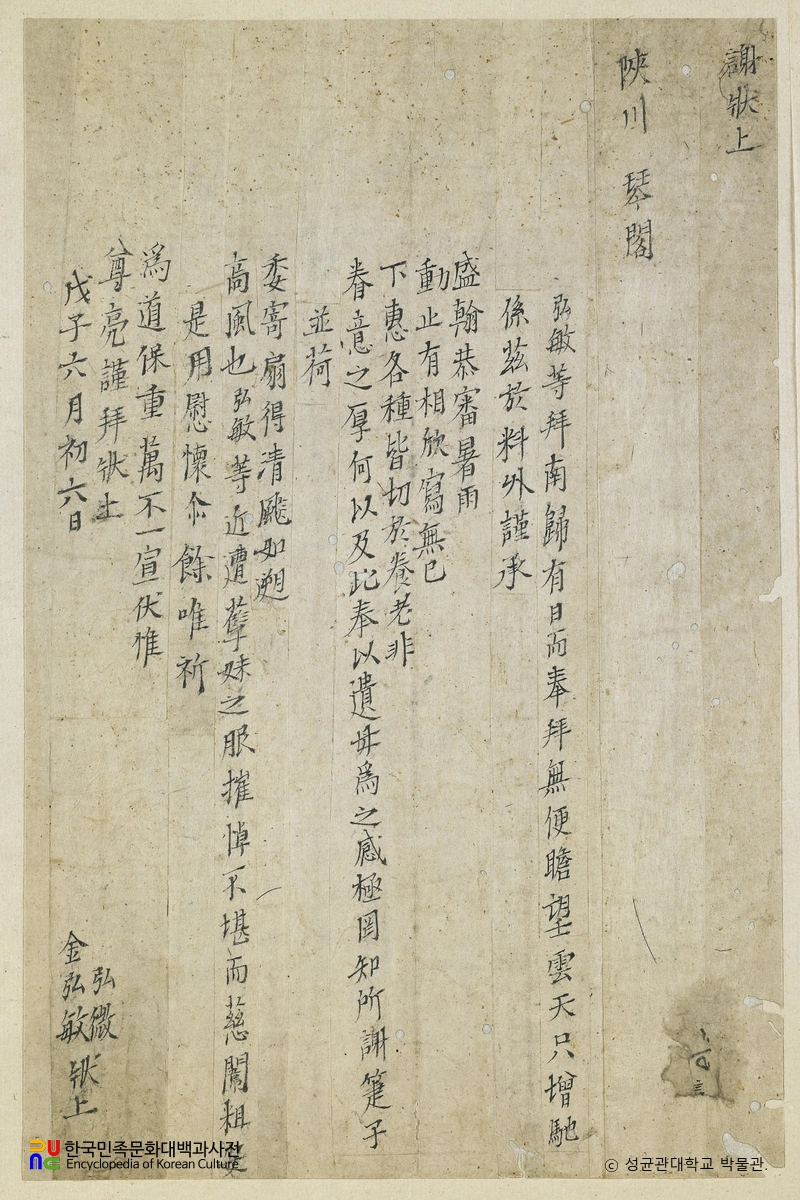 謝狀上
陜川 琴閣
弘敏等拜南歸有日而奉拜無便瞻望雲天只增馳
係玆於料外謹承
盛翰恭審暑雨
動止有相欣寫無已
下惠各種皆切於養老非
眷意之厚何以及此奉以遺母爲之感極罔知所謝箑子
並荷
委寄扇得清飈如遡
高風也弘敏等近遭孽妹之服摧悼不堪而慈闈粗安
是用慰懷尒餘唯祈
爲道保重萬不一宣伏惟
尊亮謹拜狀上
戊子六月初六日
弘微
金弘敏 狀上
한국민족문화대백과사전
Encyclopedia of Korean Culture
ⓒ 성균관대학교 박물관.